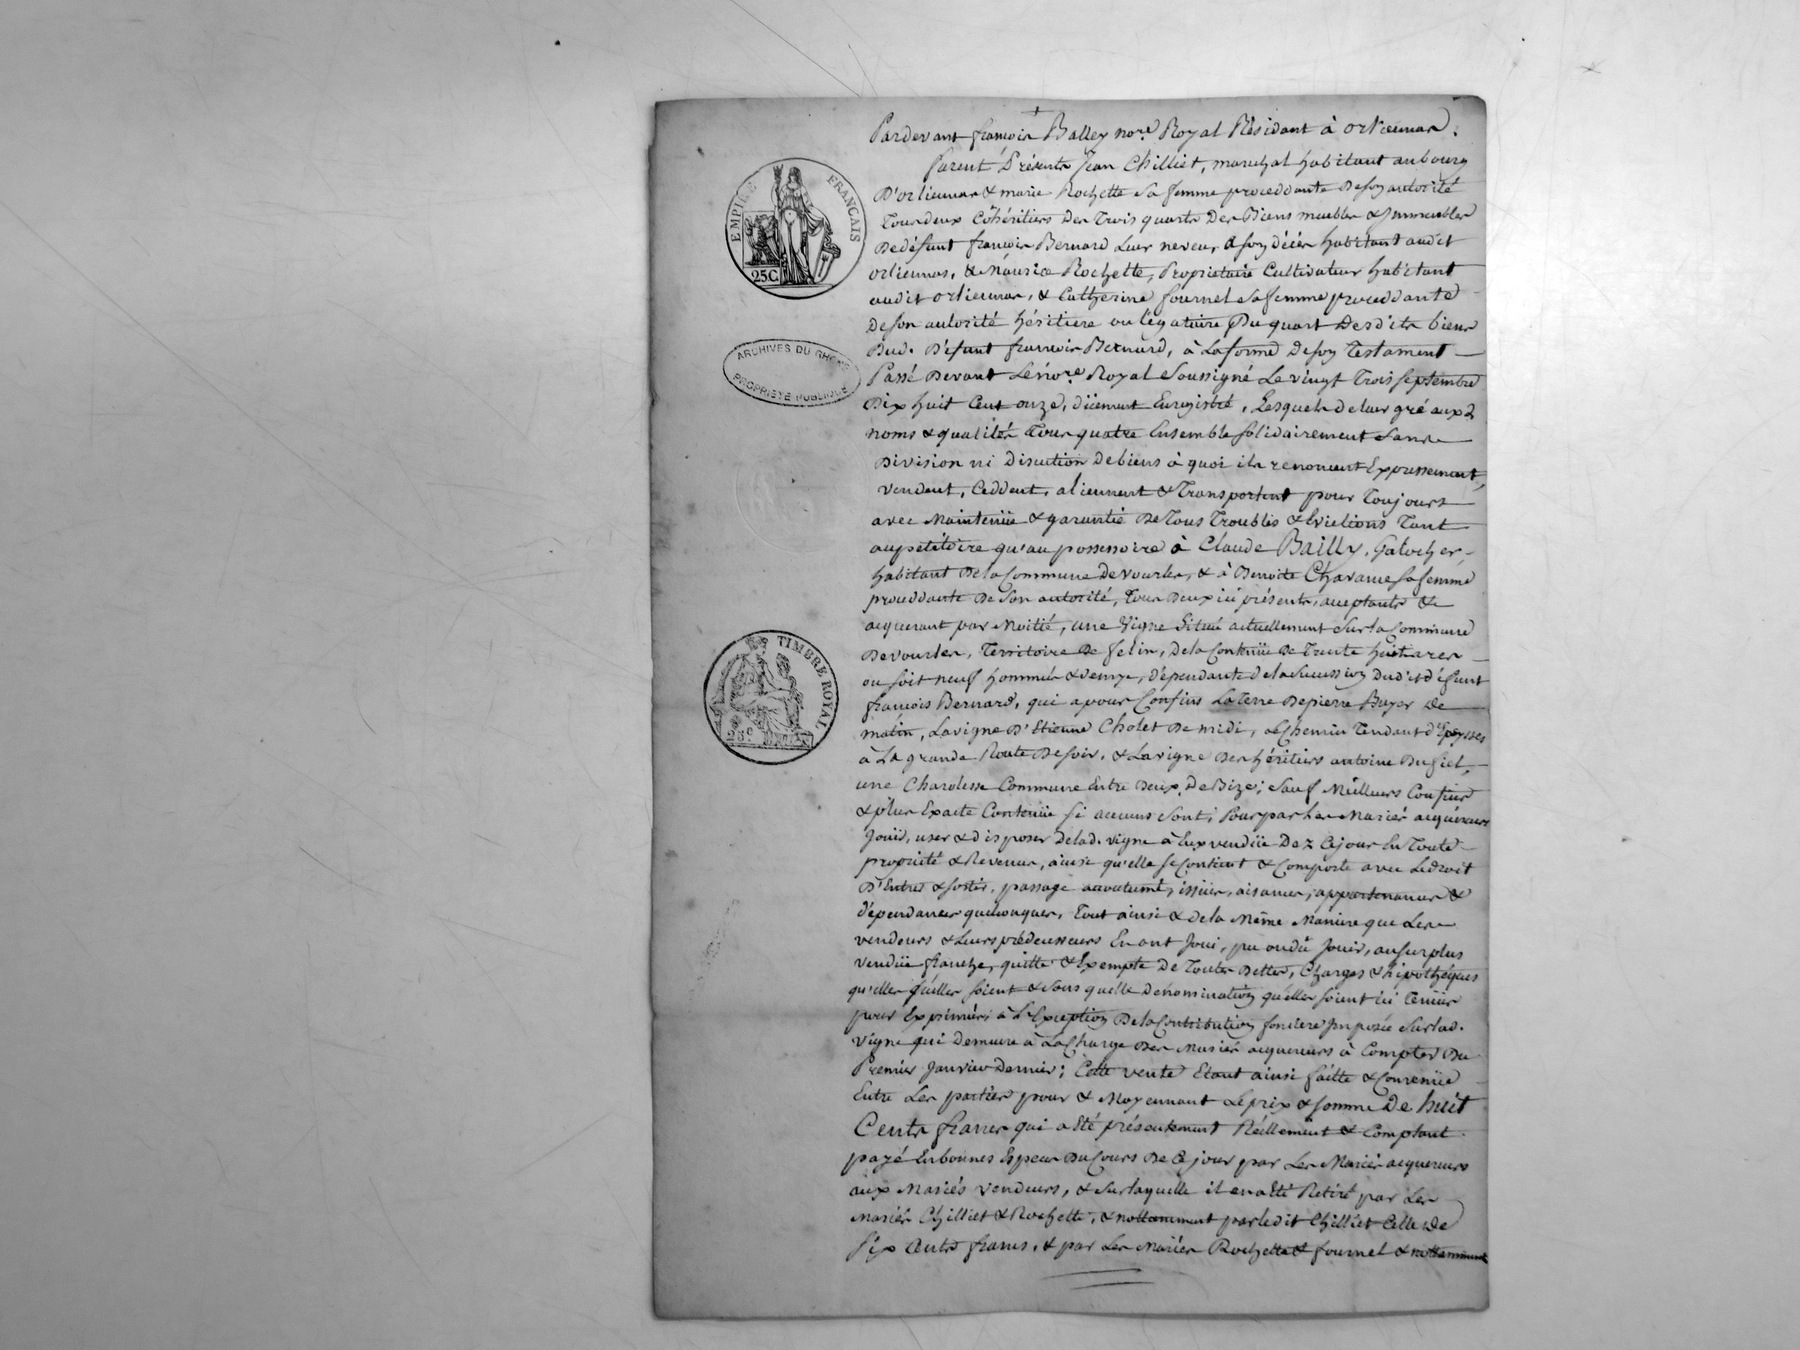 Pardevant françois Balley nore Royal Résidant à orliennas.
furent Présents Jean Chilliet, marechal habitant au bourg
D'orliennas & marie Rochette sa femme proceddante de son autorité
Tous deux Cohéritiers des Trois quarts des Biens meubles & Immeubles
de défunt françois Bernard leur neveu, à son décès habitant audit
orliennas, & Maurice Rochette, Proprietaire Cultivateur habitant
audit orliennas, & Catherine fournel sa femme proceddante
de son autorité héritiere ou légataire Du quart Desdits biens
Dud. Défunt françois Bernard, à la forme de son Testament
Passé Devant Le nore Royal Soussigné Le vingt Trois septembre
Dix huit Cent onze, düement Enregistré, Lesquels de leur gré aux d.
noms & qualités Tous quatre Ensemble solidairement sans
Division ni Discution de biens à quoi ils renoncent Expressement,
vendent, Ceddent, aliennent & Transportent pour Toujours
avec Maintenüe & garantie De Tous Troubles & Evictions Tant
au petitoire qu'au possessoire à Claude Bailly, Galocher
habitant De la Commune de vourles, & à Benoite Charame sa femme
proceddante de son autorité, Tous Deux ici présents, acceptants &
acquerant par Moitié, une Vigne Située actuellement Sur la Commune
De vourles, Territoire de felin, de la Contenüe de Trente huit ares
ou soit neuf hommées & demye, dépendante de la Succession Dudit défunt
françois Bernard, qui a pour Confins La Terre de pierre Buyer de
matin, La vigne D'Etienne Cholet De midi, Le Chemin Tendant d'Epeysses
à La grande Route De soir, & La vigne Des héritiers antoine Dufiel,
une Charolesse Commune Entre Deux, De Bize; Sauf Meilleurs Confins
& plus Exacte Contenüe si aucuns sont; Pour par Les Mariés acquéreurs
Jouir, user & disposer de lad. vigne à Eux vendüe Dez Ce jour En Toute
propriété & Revenus, ainsi qu'elle se Contient & Comporte avec Le droit
D'Entrer & sortir, passage accoutumé, issües, aisances, appartenances &
dépendances quelconques, Tout ainsi & de la Même Maniere que Les
vendeurs & Leurs prédecesseurs En ont Joui, pu ou dû Jouir, au surplus
vendüe franche, quitte & Exempte De Toutes Dettes, Charges & hipothéques
qu'elles qu'elles soient & sous quelle dénomination qu'elles soient ici Tenües
pour Exprimées, à L'Exception De la Contribution fonciere Imposée sur lad.
vigne qui demeure à La Charge Des Mariés acquereurs à Compter Du
Premier Janvier Dernier; Cette vente Etant ainsi faitte & Convenüe
Entre Les parties pour & Moyennant Le prix & somme De huit
Cents francs qui a été présentement Réellement & Comptant
payé En bonnes Especes Du Cours De Ce jour par Les Mariés acquereurs
aux Mariés vendeurs, & sur laquelle il en a été Retiré par Les
Mariés Chilliet & Rochette, & nottamment par ledit Chilliet Celle de
Six Cents francs, & par Les Mariés Rochette & fournel & nottamment
EMPIRE FRANÇAIS
25C
ARCHIVES DU RHONE
PROPRIÉTÉ PUBLIQUE
TIMBRE ROYAL
25c